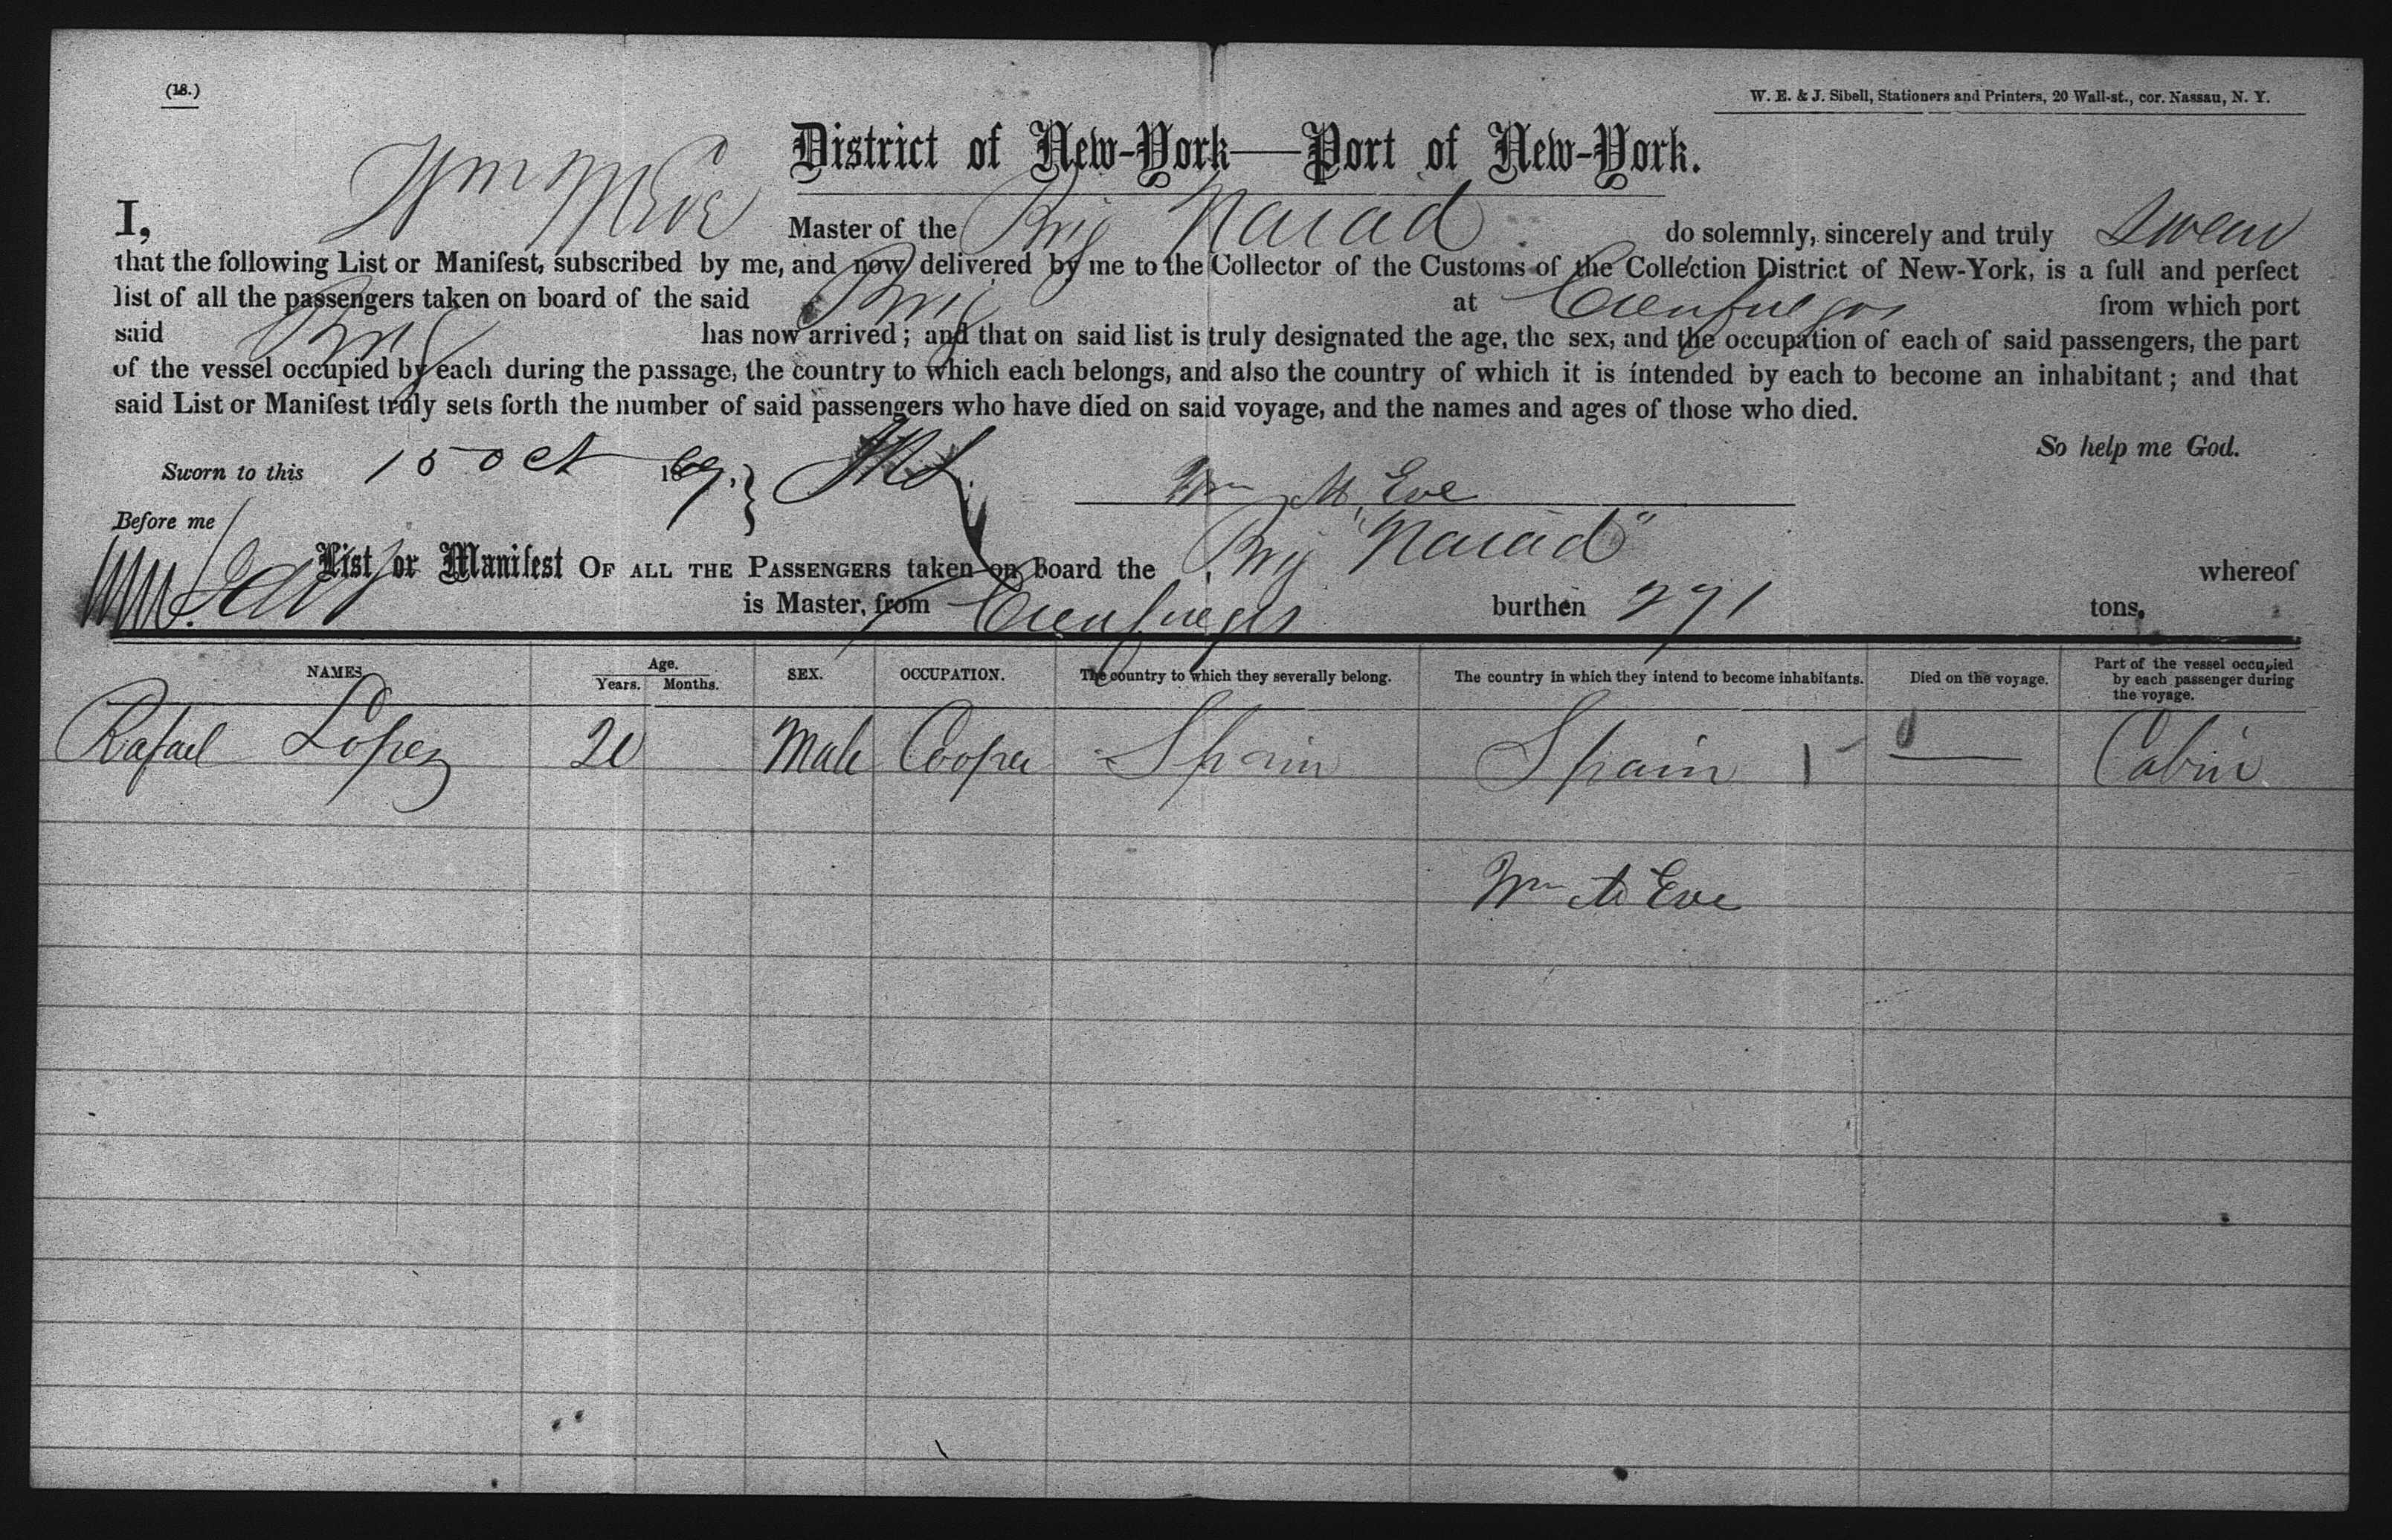 (18.)
W. E. & J. Sibell, Stationers and Printers, 20 Wall-st., cor. Nassau, N. Y.
District of New-York—Port of New-York.
I, Wm McEve Master of the Brig Naiad do solemnly, sincerely and truly swear
that the following List or Manifest, subscribed by me, and now delivered by me to the Collector of the Customs of the Collection District of New-York, is a full and perfect
list of all the passengers taken on board of the said Brig at Cienfuegos from which port
said Brig has now arrived; and that on said list is truly designated the age, the sex, and the occupation of each of said passengers, the part
of the vessel occupied by each during the passage, the country to which each belongs, and also the country of which it is intended by each to become an inhabitant; and that
said List or Manifest truly sets forth the number of said passengers who have died on said voyage, and the names and ages of those who died.
So help me God.
Sworn to this 15 Oct 1869.
Wm Mc Eve
Before me
List or Manifest OF ALL THE PASSENGERS taken on board the Brig "Naiad" whereof
is Master, from Cienfuegos burthen 271 tons.
NAMES. Age. Years. Months. SEX. OCCUPATION. The country to which they severally belong. The country in which they intend to become inhabitants. Died on the voyage. Part of the vessel occupied by each passenger during the voyage.
Rafael Lopez 20 Male Cooper Spain Spain 1 — Cabin
Wm Mc Eve